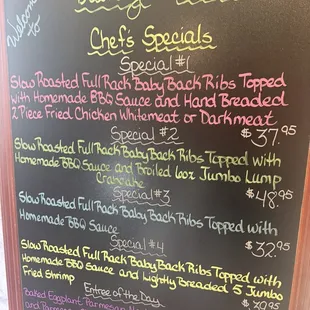 Welcome
to
Chef's Specials
Special #1
Slow Roasted Full Rack Baby Back Ribs Topped
with Homemade BBQ Sauce and Hand Breaded
2 Piece Fried Chicken Whitemeat or Darkmeat
$37.95
Special #2
Slow Roasted Full Rack Baby Back Ribs Topped with
Homemade BBQ Sauce and Broiled 6oz Jumbo Lump
Crabcake
$48.95
Special #3
Slow Roasted Full Rack Baby Back Ribs Topped with
Homemade BBQ Sauce
$32.95
Special #4
Slow Roasted Full Rack Baby Back Ribs Topped with
Homemade BBQ Sauce and Lightly Breaded 5 Jumbo
Fried Shrimp
Entree of the Day
Baked Eggplant Parmesan
and